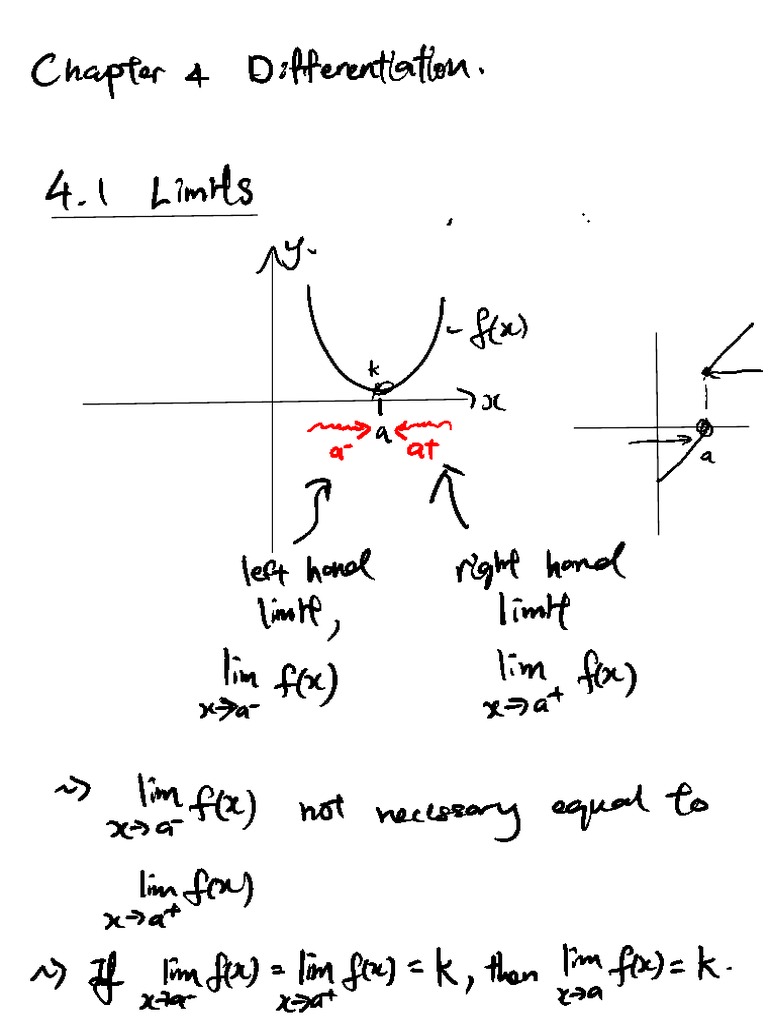 Chapter 4 Differentiation.
4.1 Limits
y
f(x)
k
x
a
a⁻ a+
a
left hand
limit,
lim f(x)
x→a⁻
right hand
limit
lim f(x)
x→a⁺
~> lim f(x) not necessary equal to
x→a⁻
lim f(x)
x→a⁺
~> If lim f(x) = lim f(x) = k, then lim f(x) = k.
x→a⁻ x→a⁺ x→a